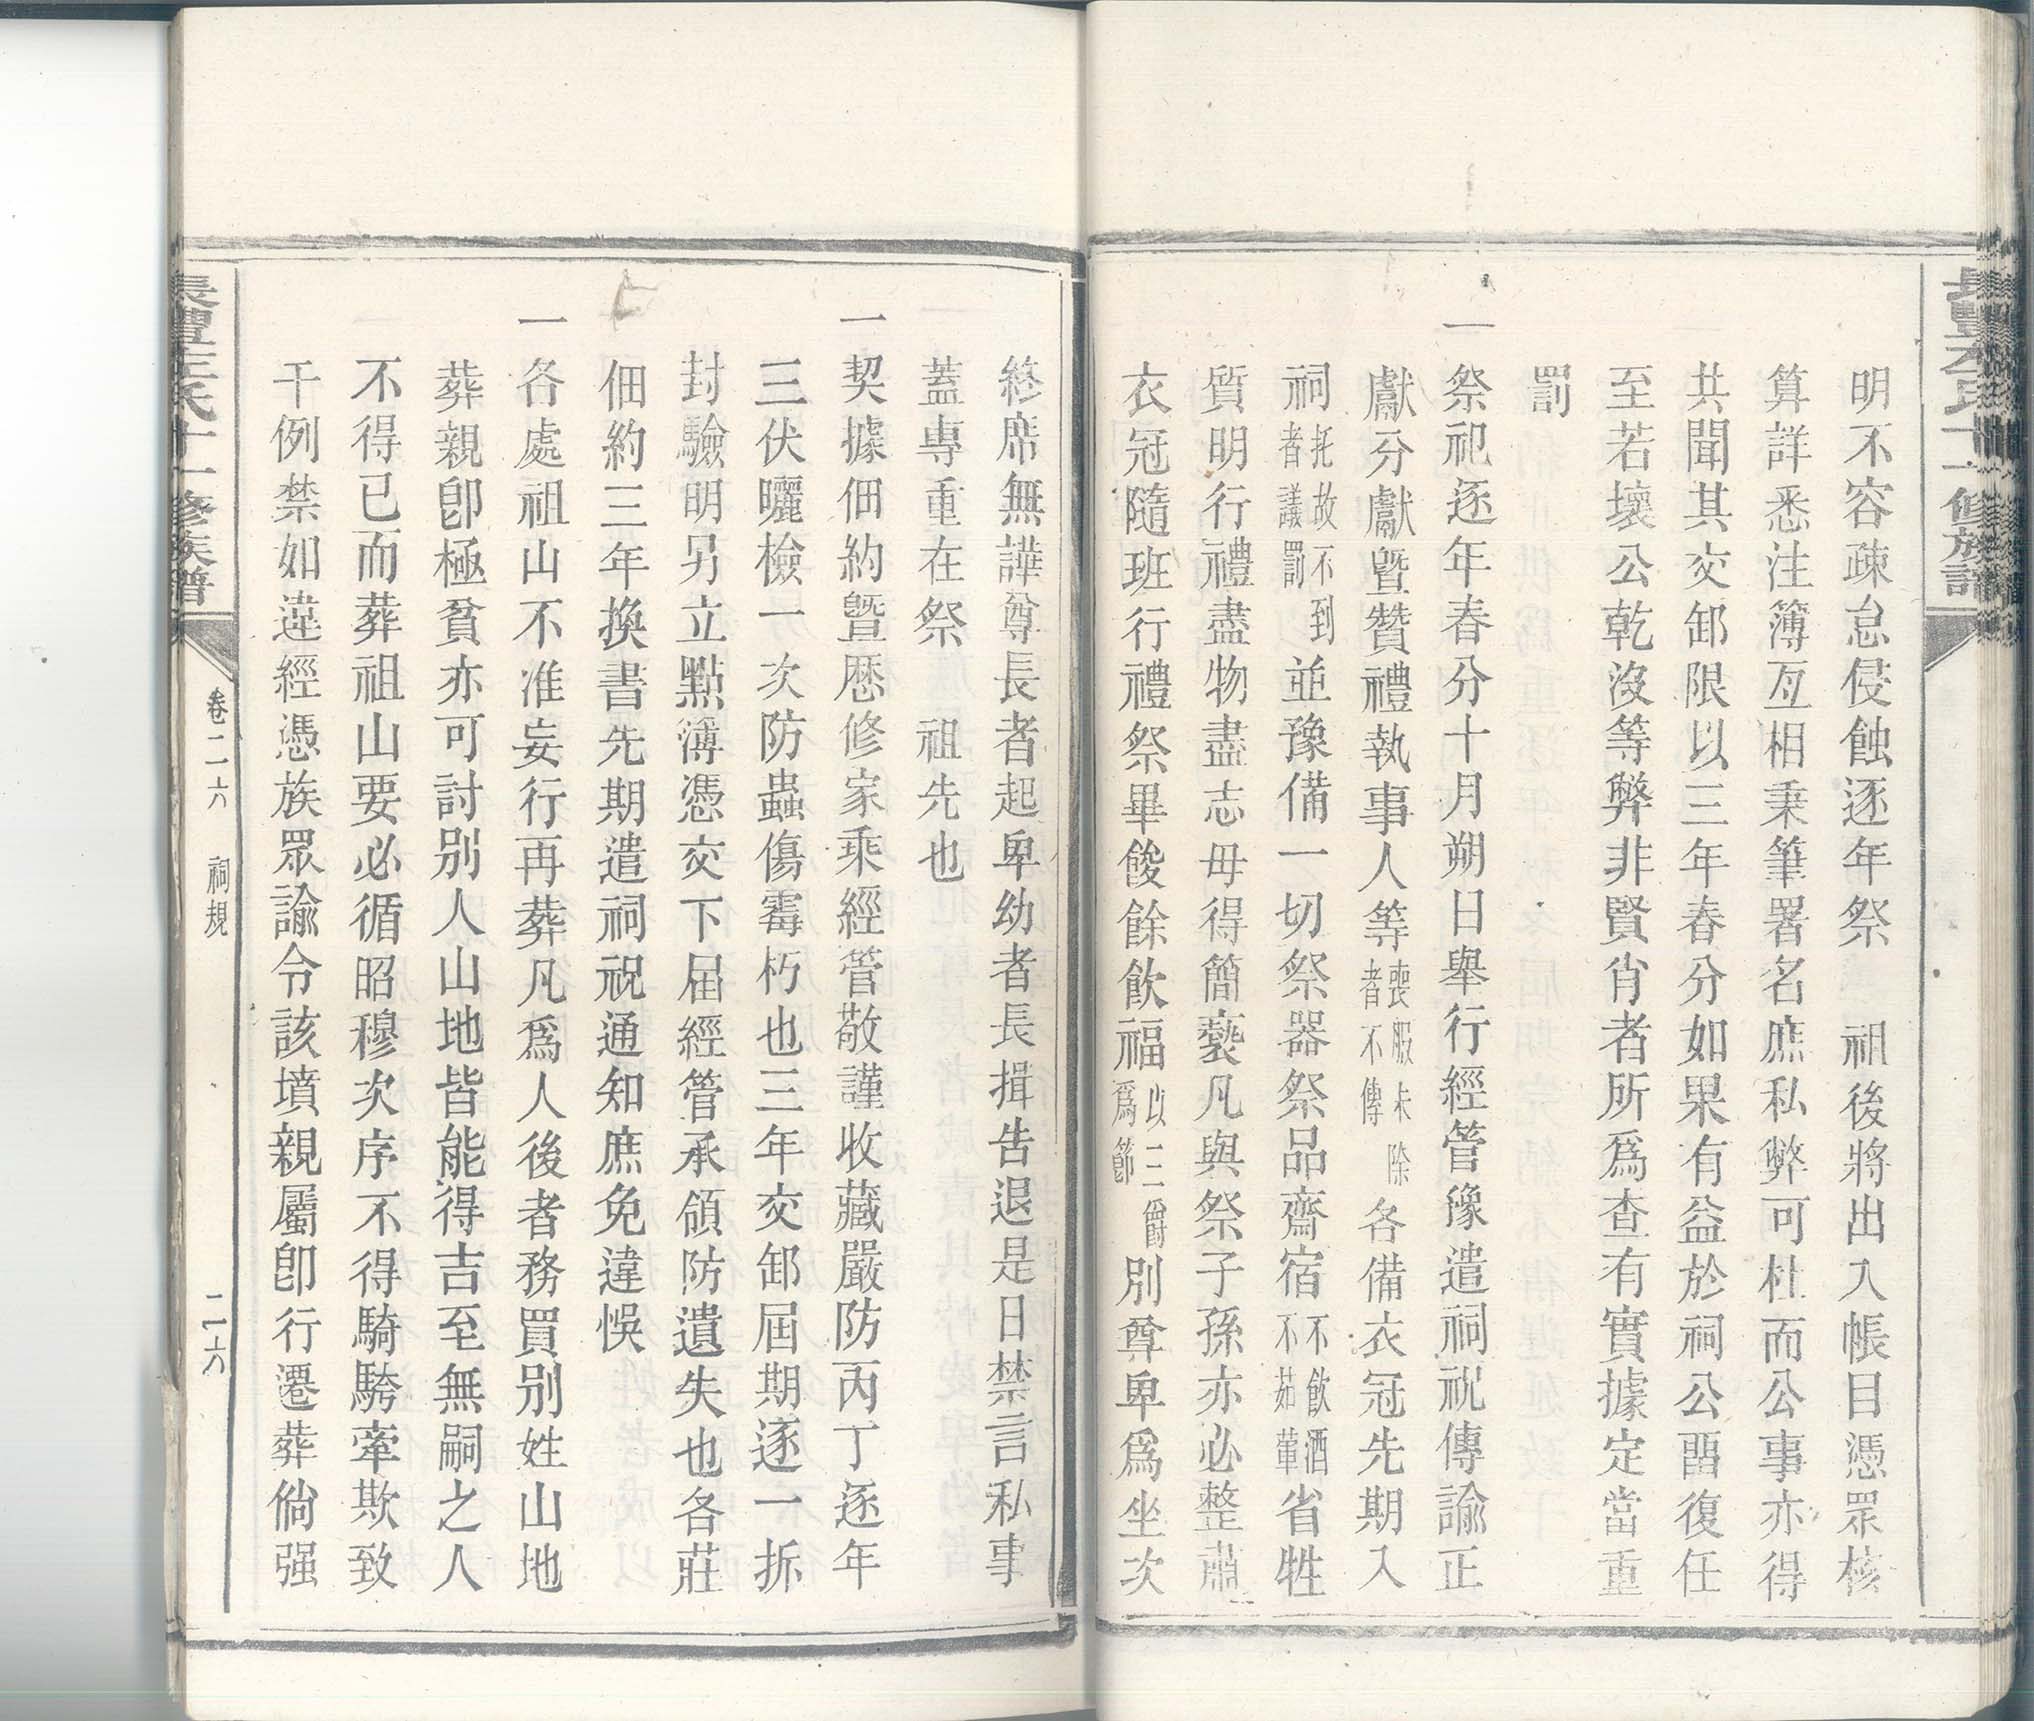 明不容疎怠侵蝕逐年祭　祖後將出入帳目憑眾核
算詳悉注簿互相秉筆署名庶私弊可杜而公事亦得
共聞其交卸限以三年春分如果有益於祠公畱復任
至若壞公乾沒等弊非賢肖者所爲查有實據定當重
罰
一祭祀逐年春分十月朔日舉行經管豫遣祠祝傳諭正
獻分獻曁贊禮執事人等喪服未除者不傳各備衣冠先期入
祠托故不到者議罰並豫備一切祭器祭品齋宿不飮酒不茹葷省牲
質明行禮盡物盡志毋得簡褻凡與祭子孫亦必整肅
衣冠隨班行禮祭畢餕餘飮福以三爵爲節別尊卑爲坐次
終席無譁尊長者起卑幼者長揖告退是日禁言私事
蓋專重在祭　祖先也
一契據佃約曁歷修家乘經管敬謹收藏嚴防丙丁逐年
三伏曬檢一次防蟲傷霉朽也三年交卸屆期逐一拆
封驗明另立點簿憑交下屆經管承領防遺失也各莊
佃約三年換書先期遣祠祝通知庶免違悞
一各處祖山不准妄行再葬凡爲人後者務買別姓山地
葬親卽極貧亦可討別人山地皆能得吉至無嗣之人
不得已而葬祖山要必循昭穆次序不得騎騎牽欺致
干例禁如違經憑族眾諭令該墳親屬卽行遷葬倘强
氏十一修族譜
卷二六　祠規
二六